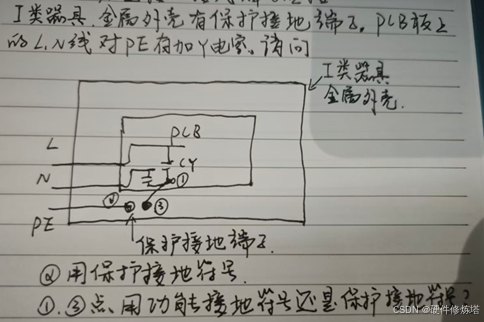 I类器具.金属外壳有保护接地端子。PCB板上
的L、N线对PE有加Y电容。请问
I类器具
金属外壳.
PCB
L
CY
N
①
②
③
PE
保护接地端子.
②用保护接地符号.
①、③点.用功能接地符号还是保护接地符号?
CSDN @硬件修炼塔